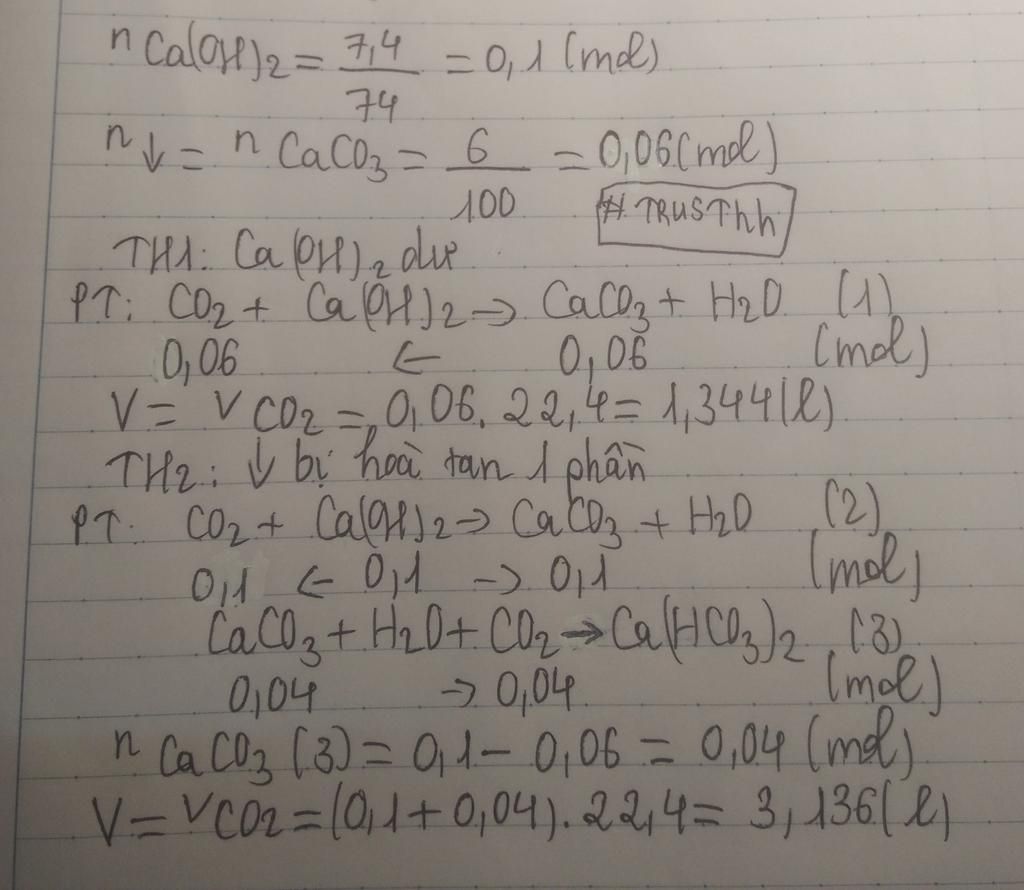 nCa(OH)2 = 7,4/74 = 0,1 (mol)
n↓ = nCaCO3 = 6/100 = 0,06 (mol)
#TRUSThh
TH1: Ca(OH)2 dư
PT: CO2 + Ca(OH)2 → CaCO3 + H2O (1)
0,06 ← 0,06 (mol)
V = VCO2 = 0,06. 22,4 = 1,344 (l)
TH2: ↓ bị hoà tan 1 phần
PT: CO2 + Ca(OH)2 → CaCO3 + H2O (2)
0,1 ← 0,1 → 0,1 (mol)
CaCO3 + H2O + CO2 → Ca(HCO3)2 (3)
0,04 → 0,04 (mol)
nCaCO3 (3) = 0,1 - 0,06 = 0,04 (mol)
V = VCO2 = (0,1 + 0,04). 22,4 = 3,136 (l)